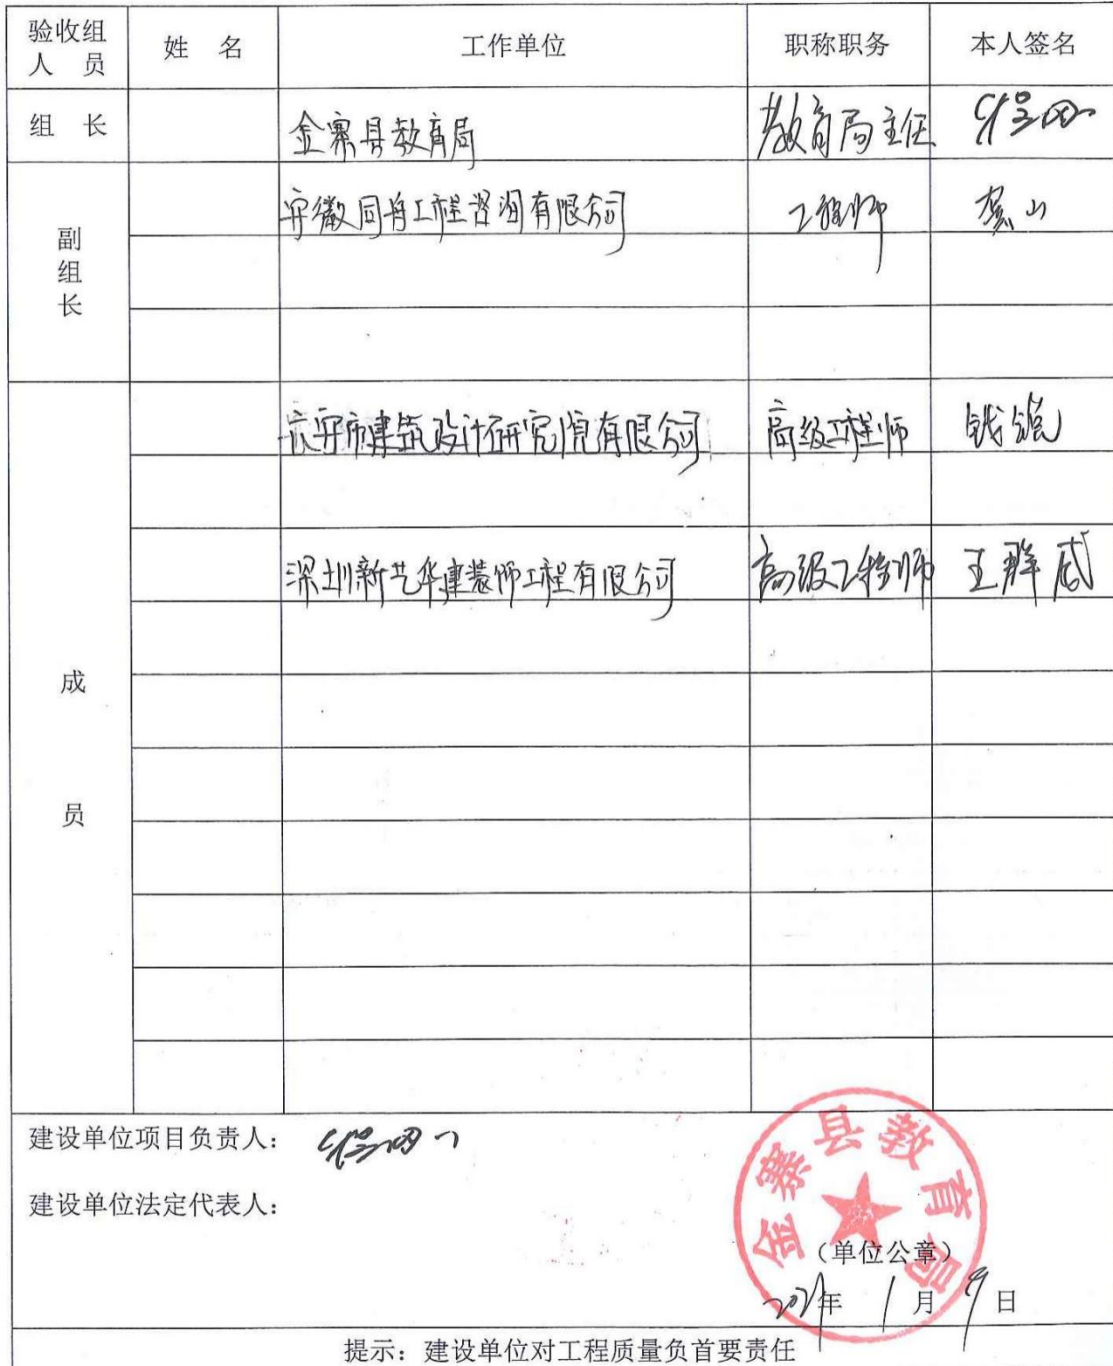 验收组人 员 姓 名 工作单位 职称职务 本人签名
组 长 金寨县教育局 教育局主任
副组长 安徽同舟工程咨询有限公司 工程师
成员 六安市建筑设计研究院有限公司 高级工程师
深圳新艺华建装饰工程有限公司 高级工程师 王群威
建设单位项目负责人：
建设单位法定代表人：
金寨县教育局
（单位公章）
年 1 月 9 日
提示：建设单位对工程质量负首要责任